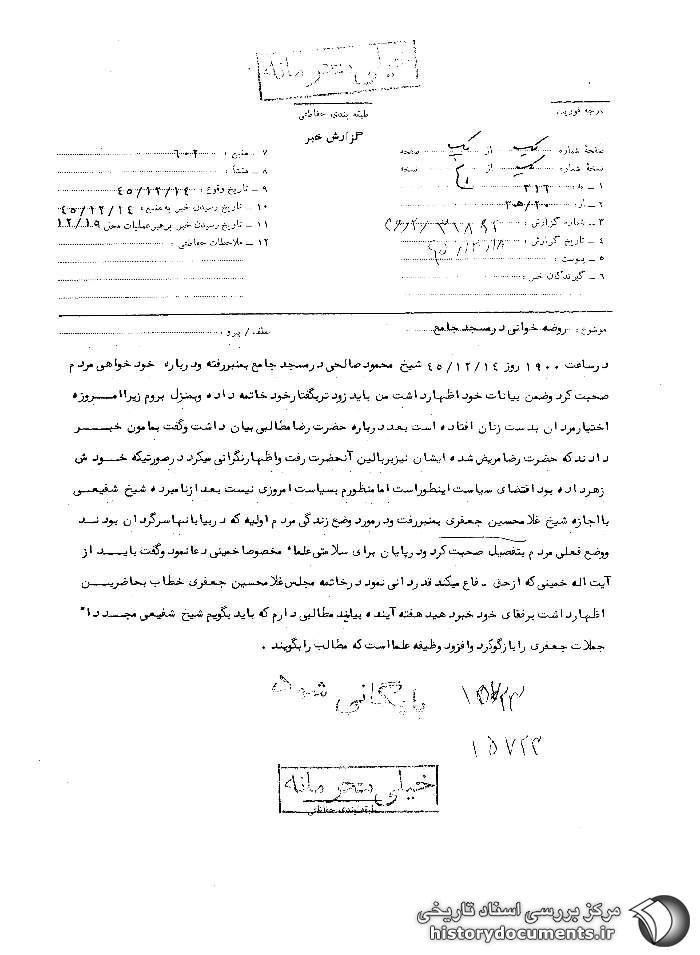 خیلی محرمانه
طبقه بندی حفاظتی
درجه فوریت:
گزارش خبر
صفحهٔ شماره یک از یک صفحه
نسخهٔ شماره یک از نسخه
۱ ـ به: ۳۱۶
۲ ـ از: ۲۰ / ۲۰ه
۳ ـ شماره گزارش:
۴ ـ تاریخ گزارش:
۵ ـ پیوست:
۶ ـ گیرندگان خبر:
۷ ـ منبع: ۶۰۲
۸ ـ منشأ:
۹ ـ تاریخ وقوع: ۴۵/۱۲/۱۴
۱۰ ـ تاریخ رسیدن خبر به منبع: ۴۵/۱۲/۱۴
۱۱ ـ تاریخ رسیدن خبر برهبر عملیات محل ۱۲/۱۹
۱۲ ـ ملاحظات حفاظتی:
موضوع: روضه خوانی در مسجد جامع
عطف / پیرو:
در ساعت ۱۹۰۰ روز ۴۵/۱۲/۱۴ شیخ محمود صالحی در مسجد جامع بمنبر رفته و درباره خودخواهی مردم
صحبت کرد و ضمن بیانات خود اظهار داشت من باید زودتر بگفتار خود خاتمه داده و بمنزل بروم زیرا امروزه
اختیار مردان بدست زنان افتاده است بعد درباره حضرت رضا مطالبی بیان داشت و گفت بمامون خبر
دادند که حضرت رضا مریض شده ایشان نیز بر بالین آنحضرت رفت و اظهار نگرانی میکرد در صورتیکه خودش
زهر داده بود اقتضای سیاست اینطور است اما منظورم بسیاست امروزی نیست بعد از نامبرده شیخ شفیعی
با اجازه شیخ غلامحسین جعفری بمنبر رفت و در مورد وضع زندگی مردم اولیه که در بیابانها سرگردان بودند
و وضع فعلی مردم بتفصیل صحبت کرد و در پایان برای سلامتی علماء مخصوصا خمینی دعا نمود و گفت باید از
آیت اله خمینی که از حق دفاع میکند قدردانی نمود در خاتمه مجلس غلامحسین جعفری خطاب بحاضرین
اظهار داشت برفقای خود خبر دهید هفته آینده بیایند مطالبی دارم که باید بگویم شیخ شفیعی مجدداً
جملات جعفری را بازگو کرد و افزود وظیفه علما است که مطالب را بگویند .
بایگانی شود
۱۵۷۲۳
خیلی محرمانه
طبقه بندی حفاظتی
مرکز بررسی اسناد تاریخی
historydocuments.ir